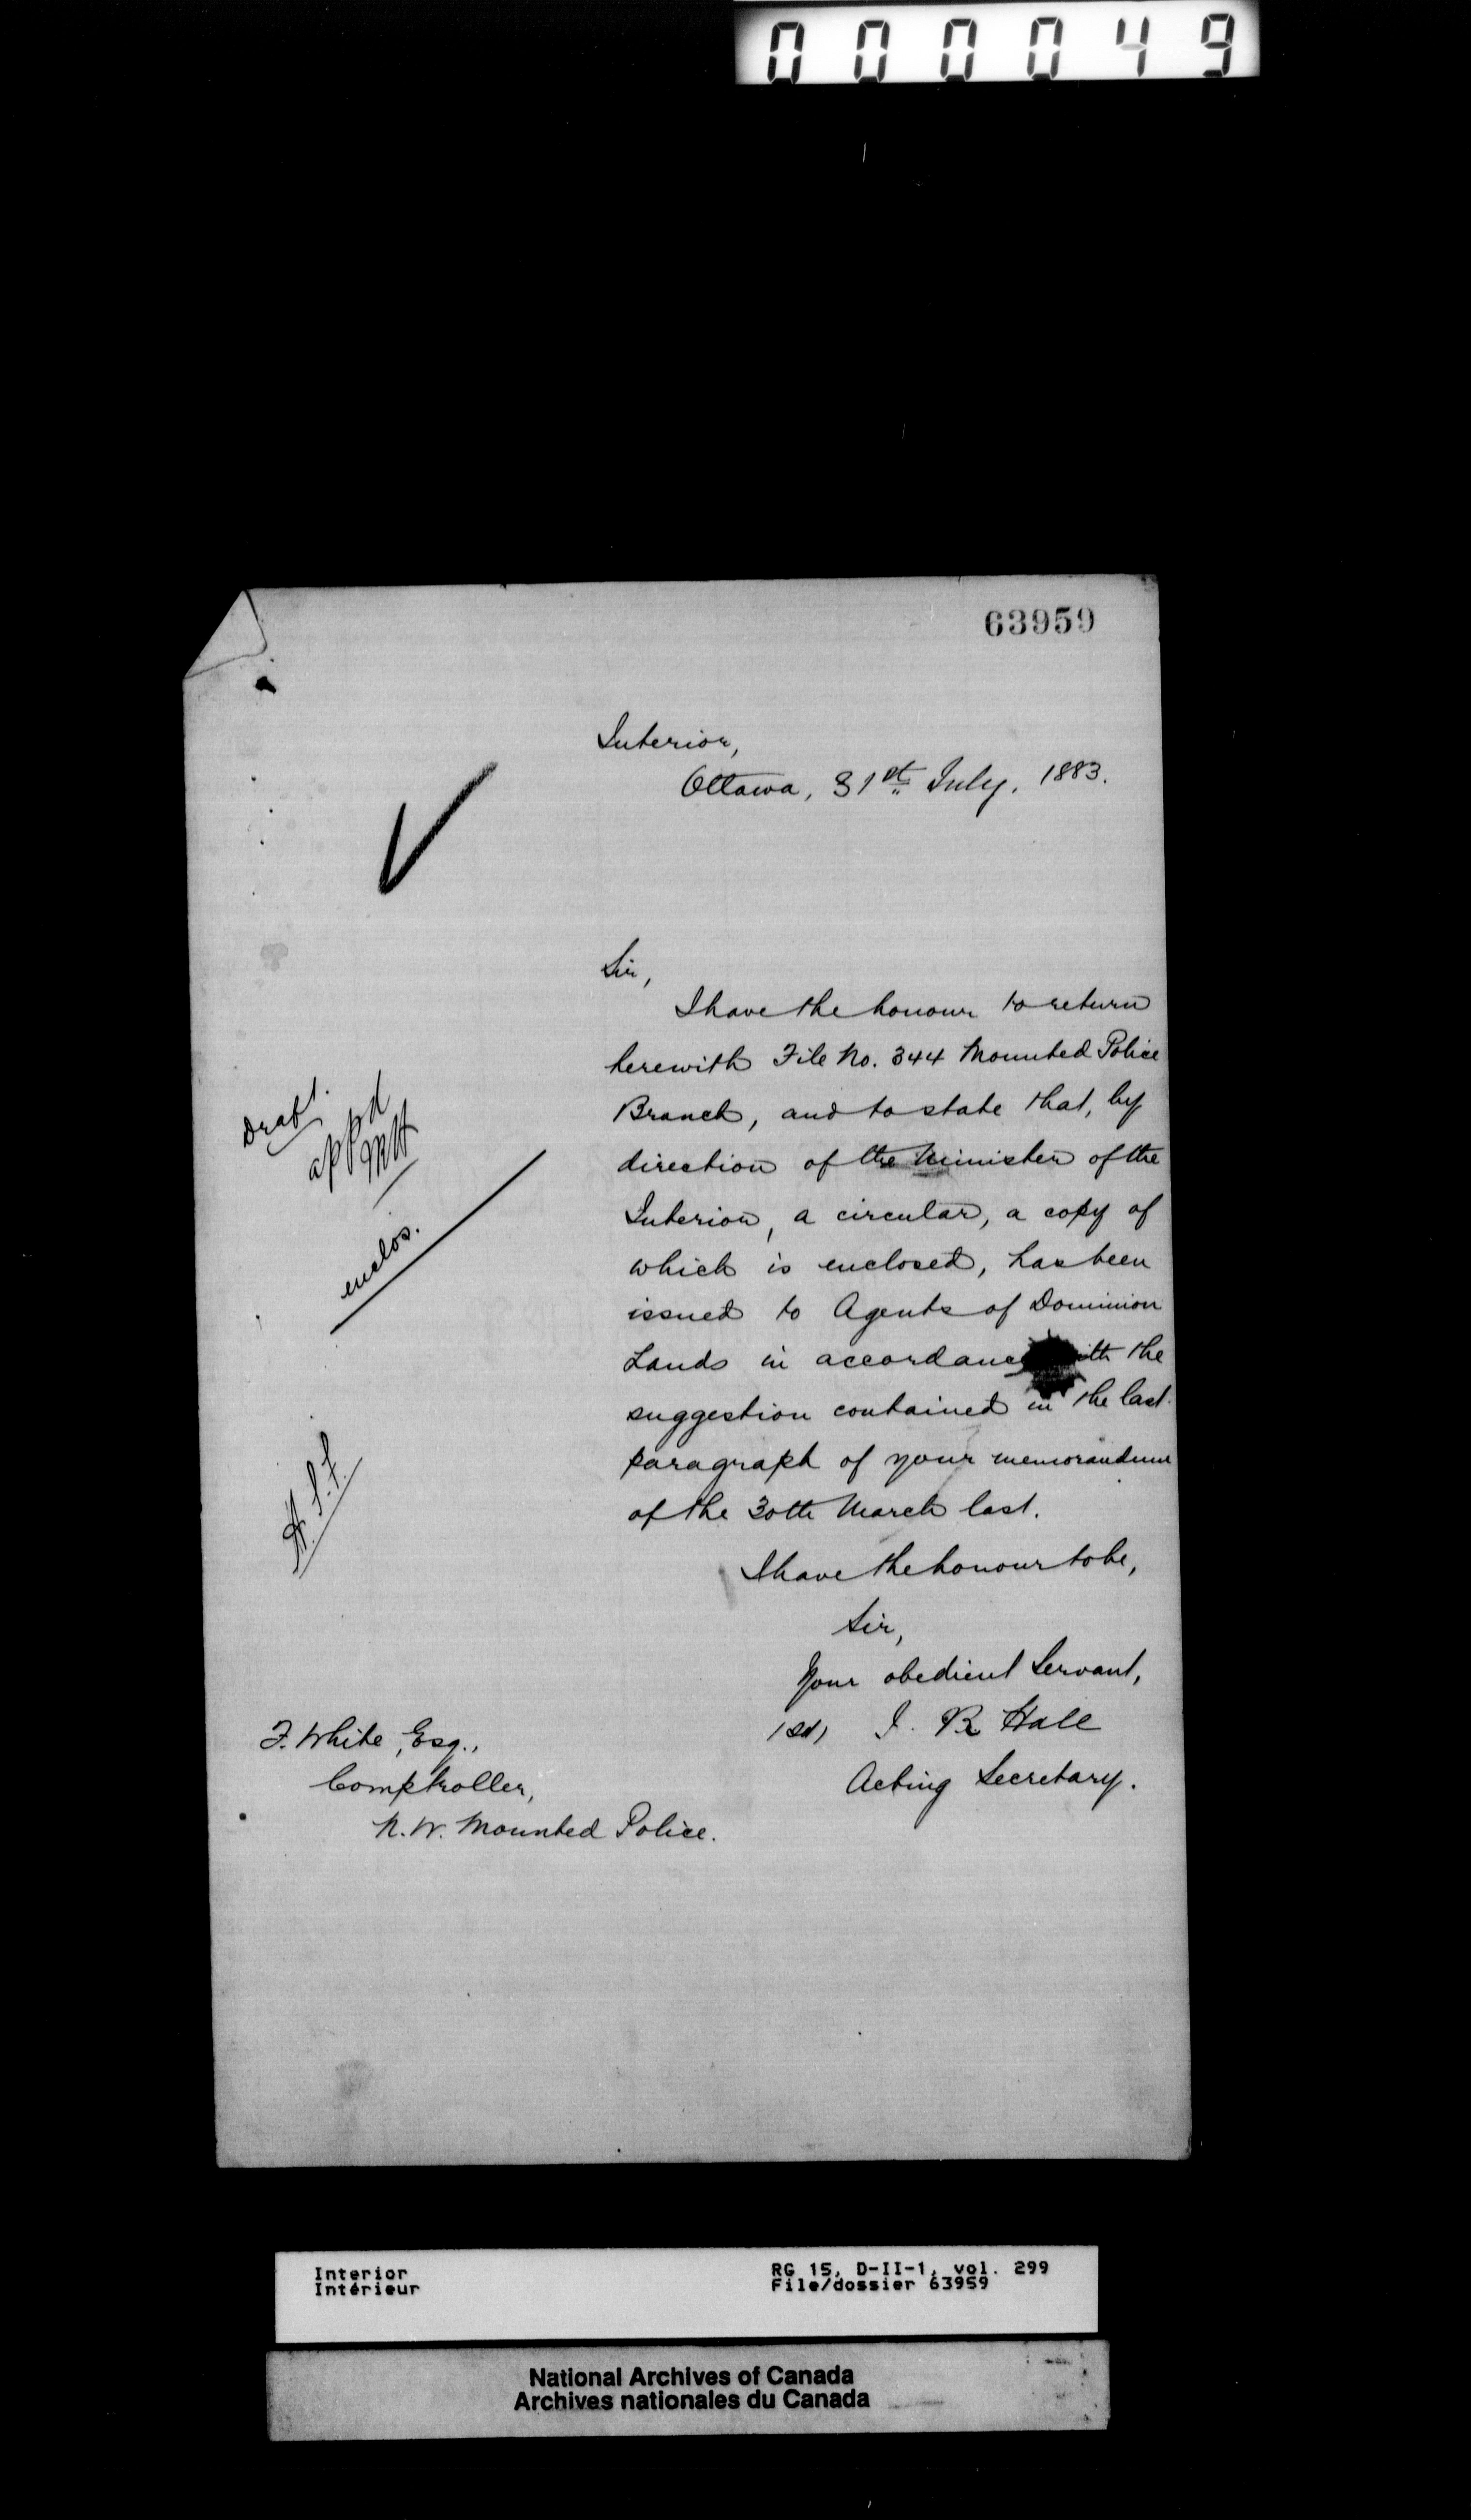 000049
63959
Interior,
Ottawa, 31st July, 1883.
Sir,
I have the honour to return
herewith File No. 344 Mounted Police
Branch, and to state that, by
direction of the Minister of the
Interior, a circular, a copy of
which is enclosed, has been
issued to Agents of Dominion
Lands in accordance with the
suggestion contained in the last
paragraph of your memorandum
of the 30th March last.
I have the honour to be,
Sir,
Your obedient Servant,
(Sd) J. R Hall
Acting Secretary.
Draft
appd
enclos.
F. White, Esq.,
Comptroller,
N.W. Mounted Police.
Interior
Intérieur
RG 15, D-II-1, vol. 299
File/dossier 63959
National Archives of Canada
Archives nationales du Canada